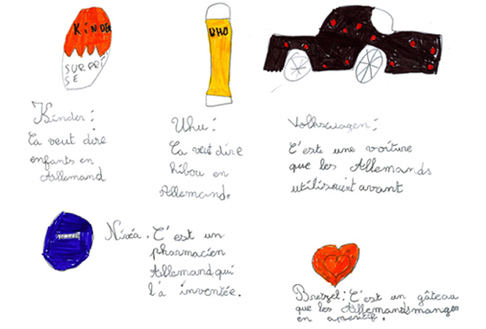 KINDER
SURPRI
SE
UHU
Kinder :
Ça veut dire
enfants en
Allemand
Uhu :
Ça veut dire
hibou en
Allemand.
Volkswagen :
C'est une voiture
que les Allemands
utilisaient avant
Nivéa. C'est un
pharmacien
Allemand qui
l'a inventée.
Bretzel : C'est un gâteau
que les Allemands mangen
en apéritif.